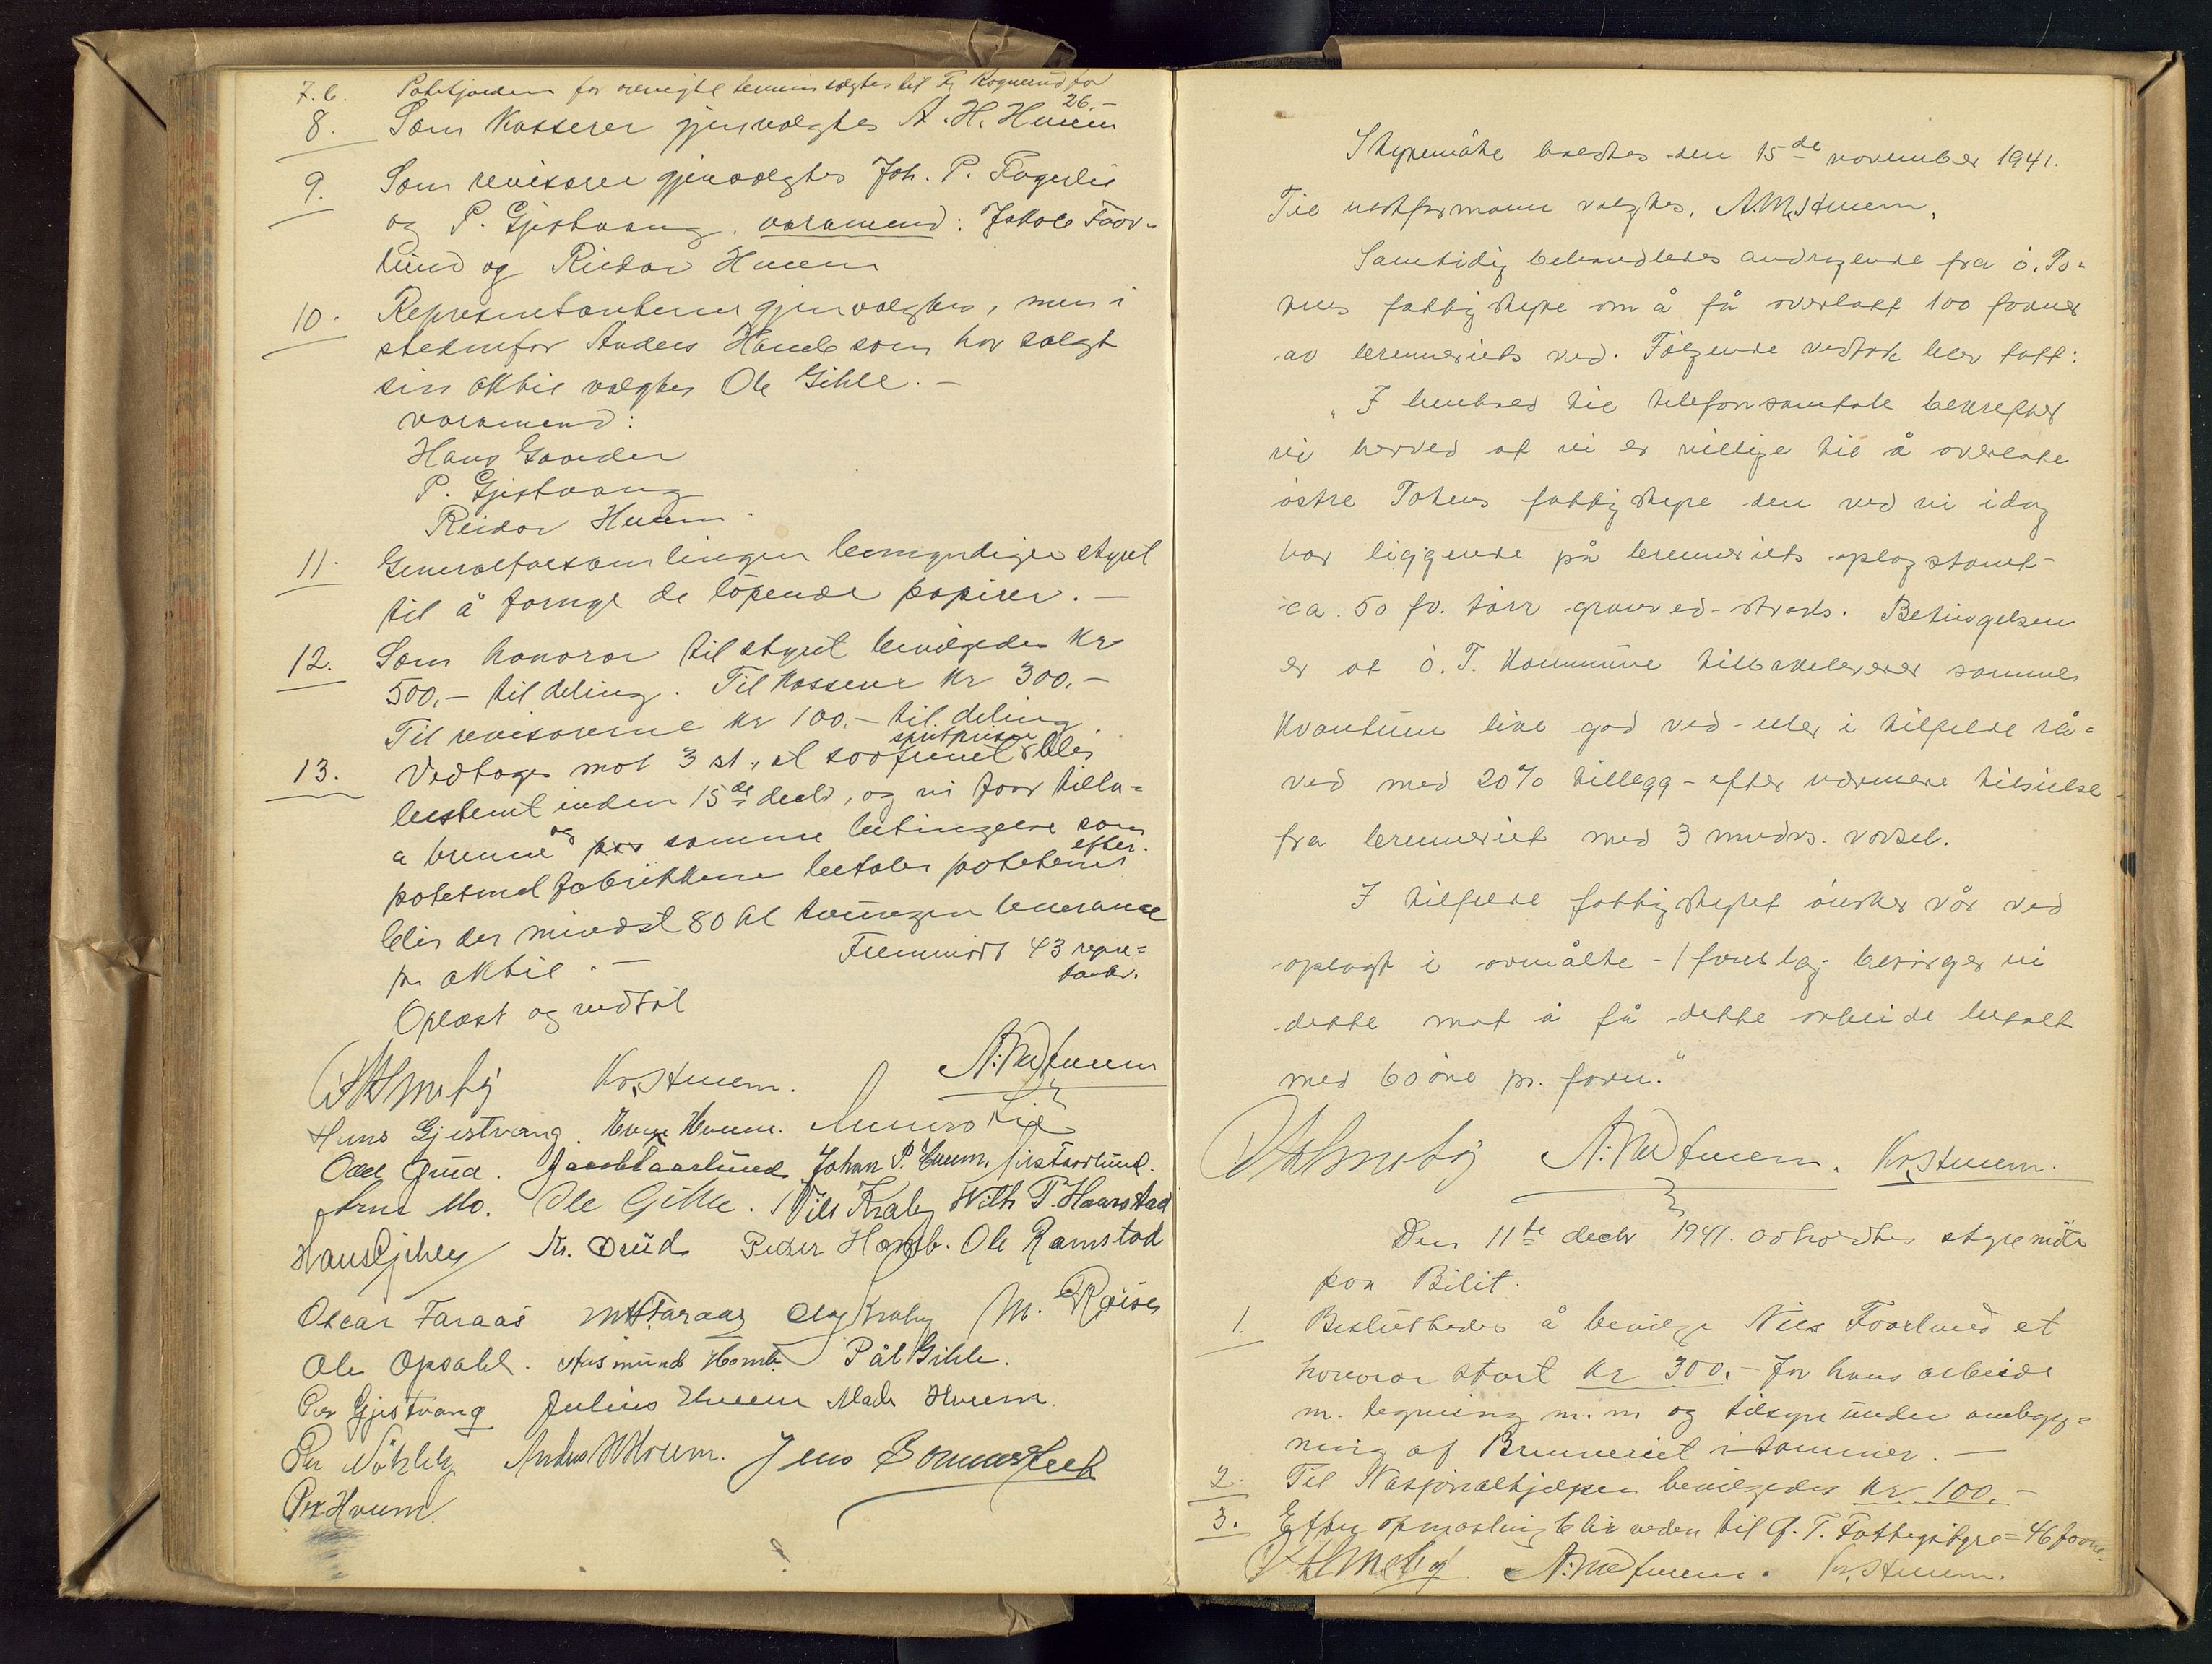 7.b. Potetjorden for avvigte termin selgtes til Fr Rognerud for
26.-
8. Som Kasserer gjenvalgtes A. H. Hveem
9. Som revisorer gjenvalgtes Joh. P. Fagerlie
og P. Gjestvang. varamend: Jakob Faar-
lund og Reidar Hveem
10. Representanterne gjenvalgtes, men i
stedenfor Anders Homb som har solgt
sin aktie valgtes Ole Gihle. -
varamend:
Hans Gaarder
P. Gjestvang
Reidar Hveem.
11. Generalforsamlingen bemyndiger styret
til å fornye de löpende papirer. -
12. Som honorar til styret bevilgedes Kr
500,- til deling. Til Kasserer Kr 300,-
Til revisorerne Kr 100.- til deling
13. Vedtoges mot 3 st., at saafremt spritprisen blir
bestemt inden 15de decbr, og vi faar tilla-
a brenne og paa samme betingelser som
potetmel fabrikkene betaler potetene efter.
blir der mindst 80 hl tvungen leveranse
pr. aktie. -
Fremmött 43 repre-
sentr.
Oplæst og vedtat
Kr. Hveem. A. M. Hveem
Hans Gjestvang. Hveem.
Odd Grud. Jacob Faarlund Johan P. Hveem.
Arne Mo. Ole Gihle. Nils Kraby Wilh P. Haarstad
Peder Homb. Ole Ramstad
Oscar Faraas M. H. Faraas Olaf Kraby M. Røise
Ole Opsahl. Asmund Homb. Pål Gihle.
Per Gjestvang Julius Hveem Mads Hveem.
Anders H Hveem. Jens
Per Hveem.
Styremöte holdtes den 15de november 1941.
Til nestformann valgtes, A. M. Hveem.
Samtidig behandledes andragende fra ö. To-
tens fattigstyre om å få overlatt 100 favner
av brenneriets ved. Fölgende vedtak blev tatt:
"I henhold til telefonsamtale bekrefter
vi herved at vi er villige til å overlate
östre Totens fattigstyre den ved vi idag
har liggende på brenneriets oplagstomt-
ca. 50 fv. törr granved - straks. Betingelsen
er at ö. T. Kommune tilbakeleverer samme
kvantum like god ved - eller i tilfelde rå-
ved med 20% tillegg - efter nærmere tilsielse
fra brenneriet med 3 mndrs. varsel.
I tilfelde fattigstyret önsker vår ved
oplagt i avmålte - 1 favnslag - besörger vi
dette mot å få dette arbeide betalt
med 60 öre pr. favn."
A. M. Hveem. Kr. Hveem.
Den 11te decbr 1941. avholdtes styremöte
paa Bilit.
1. Besluttedes å bevilge Nils Faarlund et
honorar stort Kr 300,- for hans arbeide
m. tegning m.m og tilsyn under ombyg-
ning af Brenneriet i sommer. -
2. Til Nasjonalhjelpen bevilgedes Kr 100.-
3. Efter opmaaling blir veden til Ö. T. Fattigstyre = 46 favne
A. M. Hveem. Kr. Hveem.